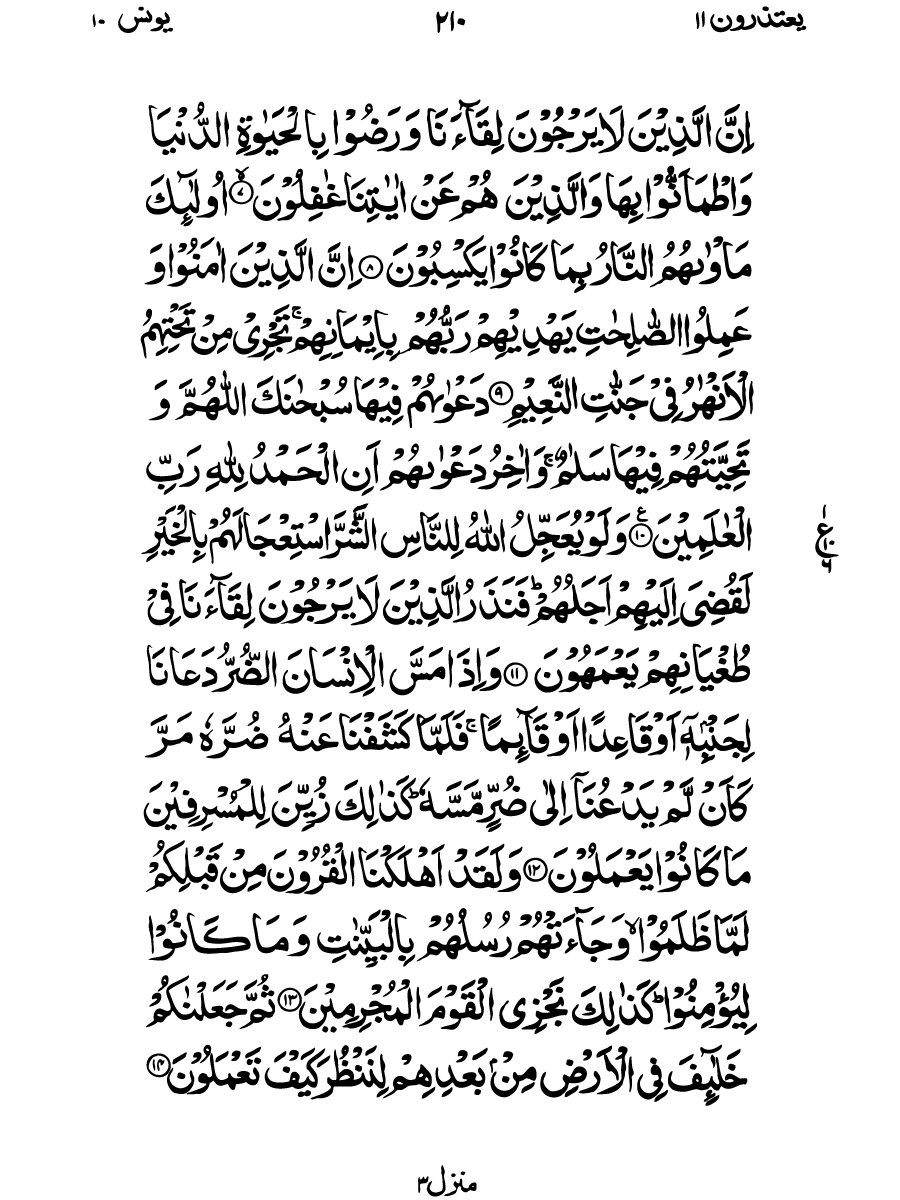 یعتذرون ۱۱ ۲۱۰ یونس ۱۰
اِنَّ الَّذِيْنَ لَا يَرْجُوْنَ لِقَآءَنَا وَ رَضُوْا بِالْحَيٰوةِ الدُّنْيَا
وَ اطْمَاَنُّوْا بِهَا وَ الَّذِيْنَ هُمْ عَنْ اٰيٰتِنَا غٰفِلُوْنَ ۙ‏﴿۷﴾ اُولٰٓئِكَ
مَاْوٰىهُمُ النَّارُ بِمَا كَانُوْا يَكْسِبُوْنَ ﴿۸﴾ اِنَّ الَّذِيْنَ اٰمَنُوْا وَ
عَمِلُوا الصّٰلِحٰتِ يَهْدِيْهِمْ رَبُّهُمْ بِاِيْمَانِهِمْ ۚ تَجْرِيْ مِنْ تَحْتِهِمُ
الْاَنْهٰرُ فِيْ جَنّٰتِ النَّعِيْمِ ﴿۹﴾ دَعْوٰىهُمْ فِيْهَا سُبْحٰنَكَ اللّٰهُمَّ وَ
تَحِيَّتُهُمْ فِيْهَا سَلٰمٌ ۚ وَ اٰخِرُ دَعْوٰىهُمْ اَنِ الْحَمْدُ لِلّٰهِ رَبِّ
الْعٰلَمِيْنَ ﴿۱۰﴾ ع وَ لَوْ يُعَجِّلُ اللّٰهُ لِلنَّاسِ الشَّرَّ اسْتِعْجَالَهُمْ بِالْخَيْرِ
۱ ع ۱۰ ۶
لَقُضِيَ اِلَيْهِمْ اَجَلُهُمْ ؕ فَنَذَرُ الَّذِيْنَ لَا يَرْجُوْنَ لِقَآءَنَا فِيْ
طُغْيَانِهِمْ يَعْمَهُوْنَ ﴿۱۱﴾ وَ اِذَا مَسَّ الْاِنْسَانَ الضُّرُّ دَعَانَا
لِجَنْۢبِهٖۤ اَوْ قَاعِدًا اَوْ قَآئِمًا ۚ فَلَمَّا كَشَفْنَا عَنْهُ ضُرَّهٗ مَرَّ
كَاَنْ لَّمْ يَدْعُنَاۤ اِلٰى ضُرٍّ مَّسَّهٗ ؕ كَذٰلِكَ زُيِّنَ لِلْمُسْرِفِيْنَ
مَا كَانُوْا يَعْمَلُوْنَ ﴿۱۲﴾ وَ لَقَدْ اَهْلَكْنَا الْقُرُوْنَ مِنْ قَبْلِكُمْ
لَمَّا ظَلَمُوْا ۙ وَ جَآءَتْهُمْ رُسُلُهُمْ بِالْبَيِّنٰتِ وَ مَا كَانُوْا
لِيُؤْمِنُوْا ؕ كَذٰلِكَ نَجْزِي الْقَوْمَ الْمُجْرِمِيْنَ ﴿۱۳﴾ ثُمَّ جَعَلْنٰكُمْ
خَلٰٓئِفَ فِي الْاَرْضِ مِنْۢ بَعْدِهِمْ لِنَنْظُرَ كَيْفَ تَعْمَلُوْنَ ﴿۱۴﴾
منزل ۳